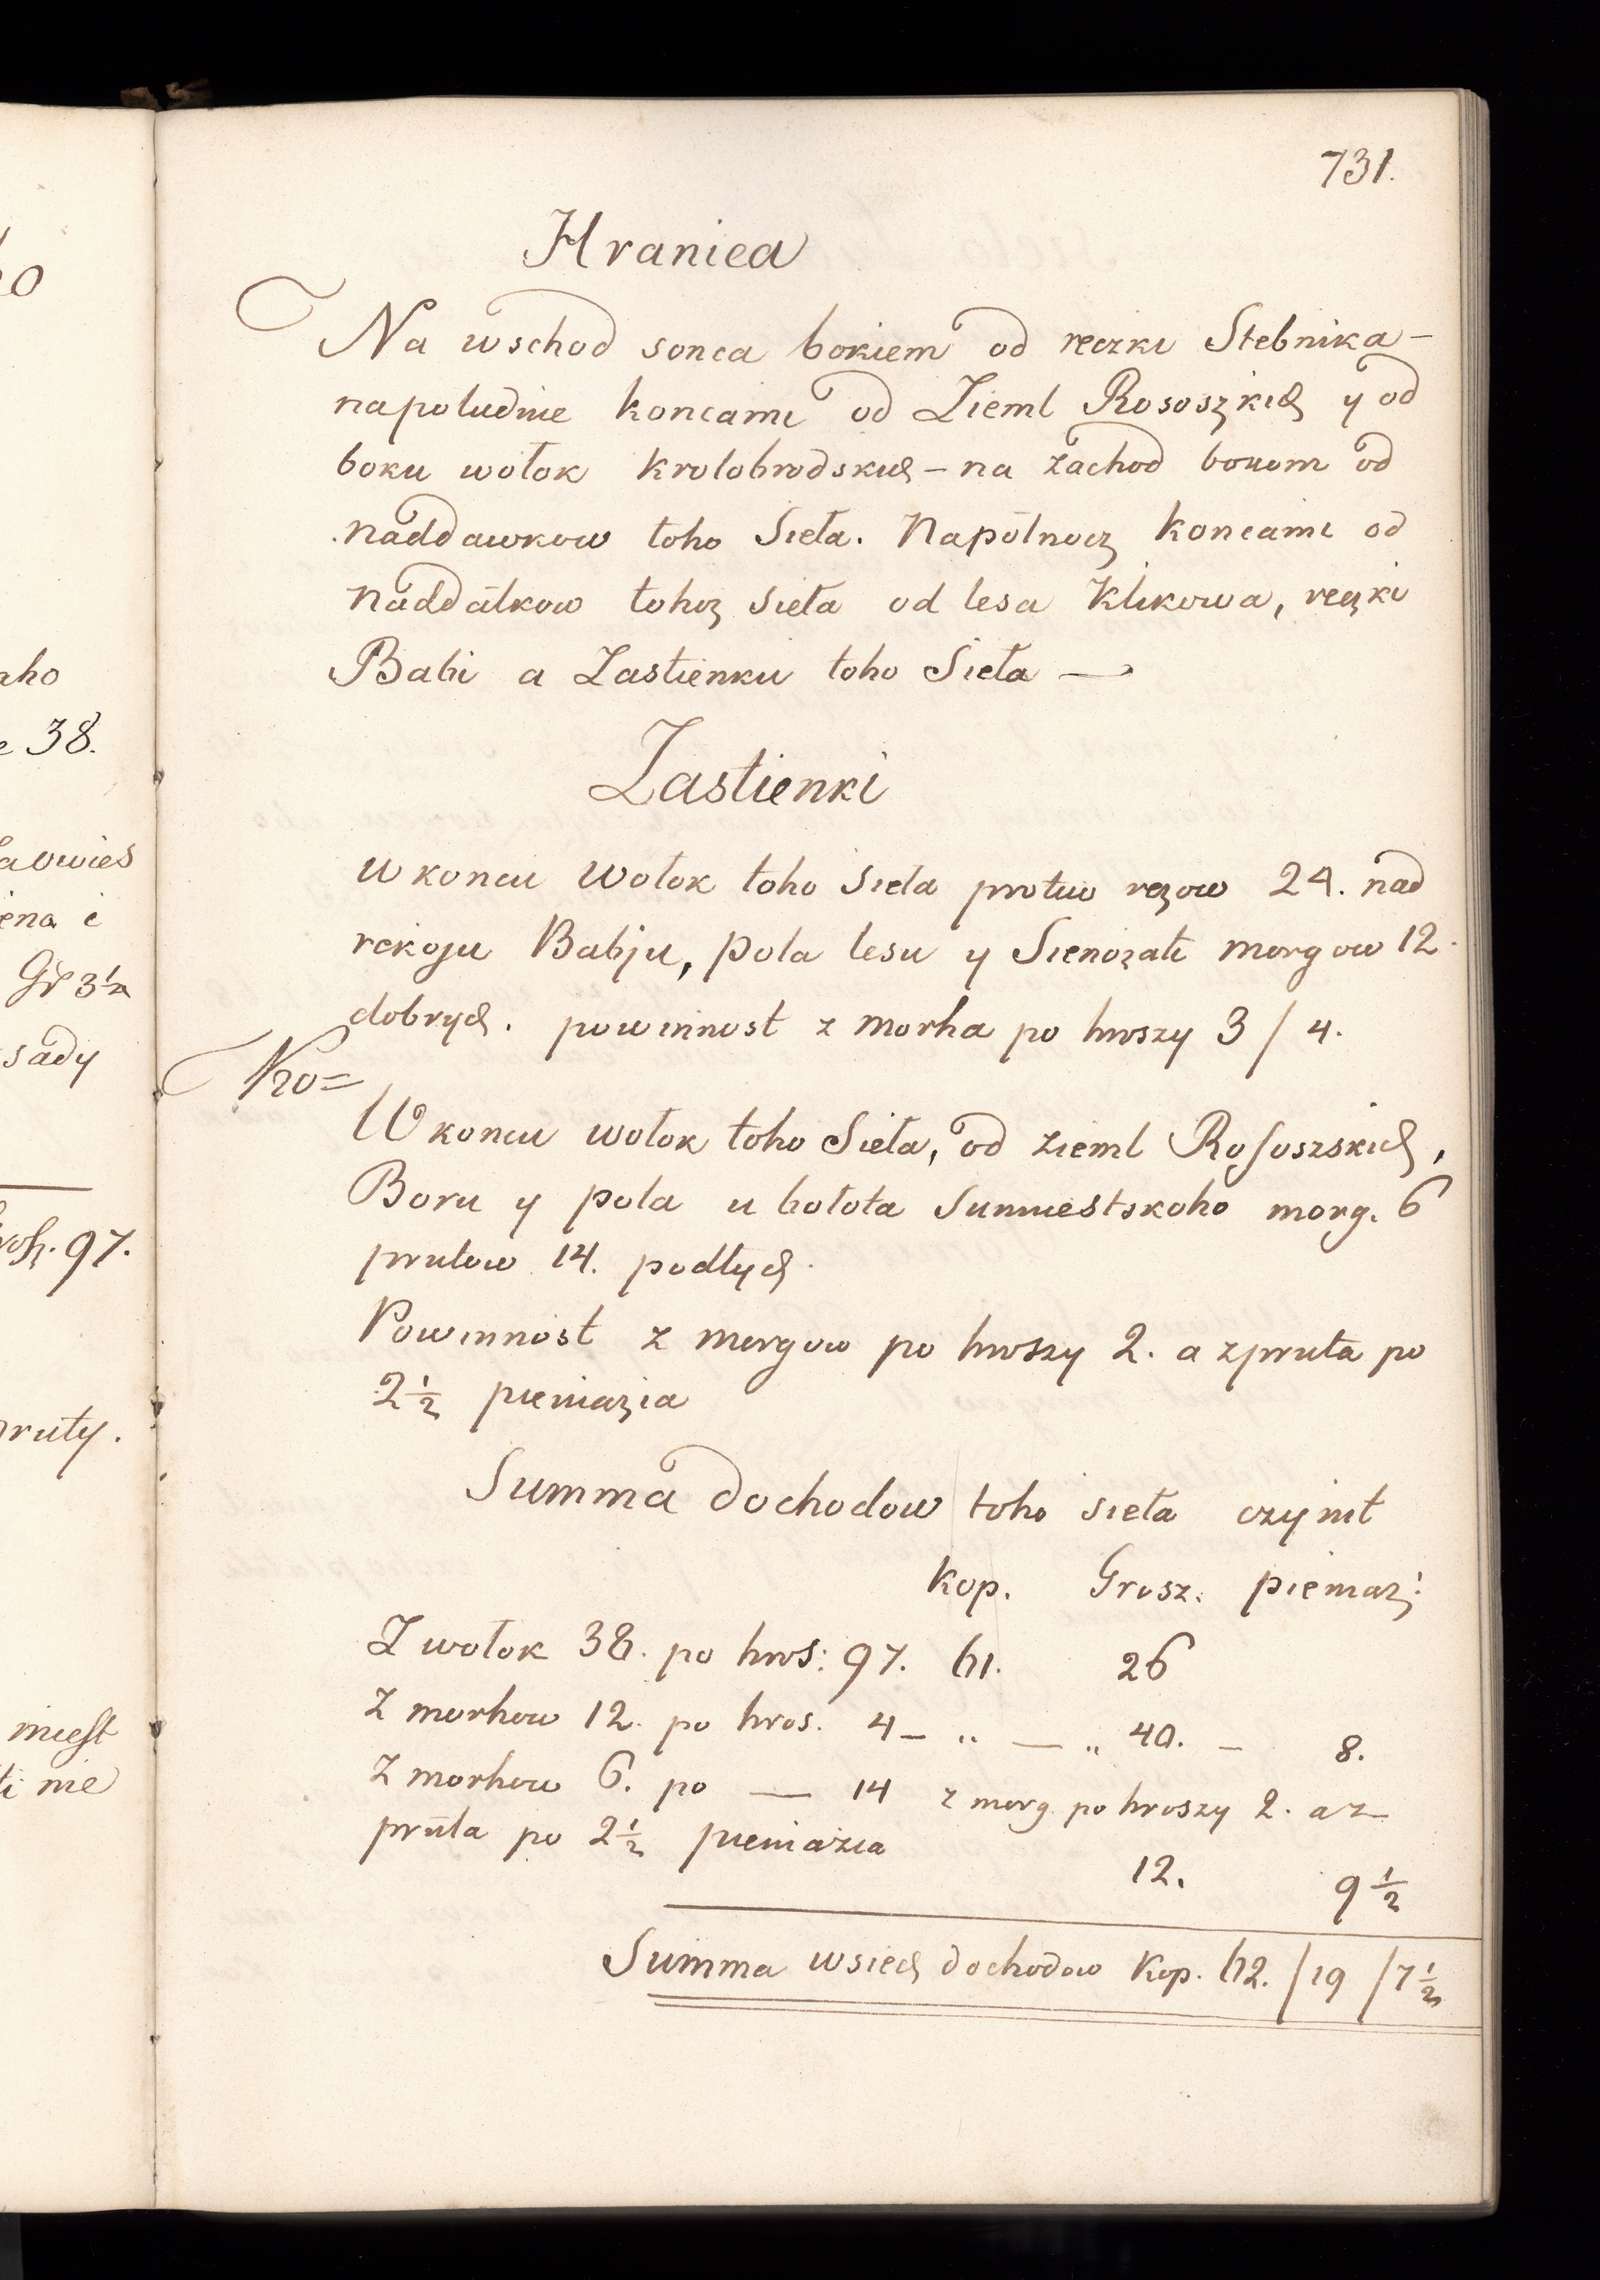 731.
Hranica
Na wschod sonca bokiem od reczki Stebnika –
napoludnie koncami od Zieml Rososzkich y od
boku wołok Krolobrodskich – na zachod bokom od
naddawkow toho Sieła. Napołnocz koncami od
naddatkow tohoz sieła od lesa Klikowa, reczki
Babi a Zastienku toho Sieła —
Zastienki
W koncu wołok toho sieła protiw rezow 24. nad
rekoju Babju, pola lesu y Sienozati morgow 12.
dobrych. powinnost z morha po hroszy 3 / 4.
Nro =
W koncu wołok toho Sieła, od zieml Rososzskich,
Boru y pola u bołota Sumiestskoho morg. 6
prutow 14. podłych.
Powinnost z morgow po hroszy 2. a z pruta po
2 1/2 pieniazia
Summa dochodow toho sieła czynit
Kop. Grosz. pieniaz:
Z wołok 38. po hros: 97. 61. 26
Z morhow 12. po hros. 4 – " — " 40. – 8.
Z morhow 6. po — 14 z morg. po hroszy 2. a z
pruta po 2 1/2 pieniazia
12. 9 1/2
Summa wsiech dochodow Kop. 62. / 19 / 7 1/2
aho
38.
ena i
Gr 3 1/2
sady
97.
pruty.
miest
ti nie